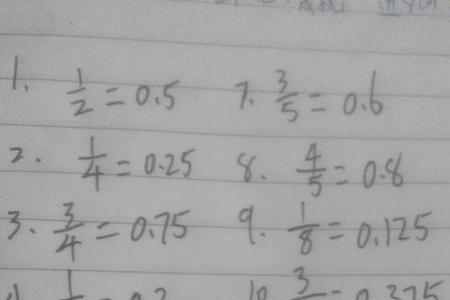 1. 1/2 = 0.5 7. 3/5 = 0.6
2. 1/4 = 0.25 8. 4/5 = 0.8
3. 3/4 = 0.75 9. 1/8 = 0.125